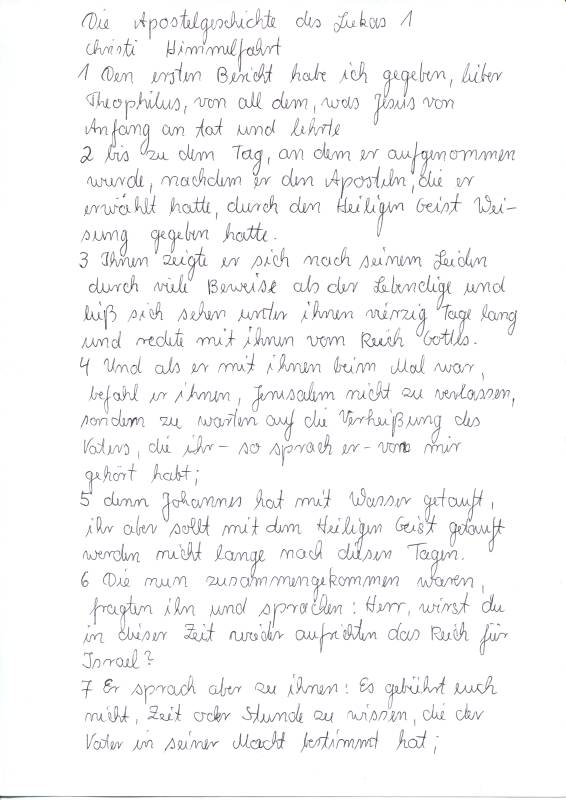 Die Apostelgeschichte des Lukas 1
Christi Himmelfahrt
1 Den ersten Bericht habe ich gegeben, lieber
Theophilus, von all dem, was Jesus von
Anfang an tat und lehrte
2 bis zu dem Tag, an dem er aufgenommen
wurde, nachdem er den Aposteln, die er
erwählt hatte, durch den Heiligen Geist Wei-
sung gegeben hatte.
3 Ihnen zeigte er sich nach seinem Leiden
durch viele Beweise als der Lebendige und
ließ sich sehen unter ihnen vierzig Tage lang
und redete mit ihnen vom Reich Gottes.
4 Und als er mit ihnen beim Mal war,
befahl er ihnen, Jerusalem nicht zu verlassen,
sondern zu warten auf die Verheißung des
Vaters, die ihr - so sprach er - von mir
gehört habt;
5 denn Johannes hat mit Wasser getauft,
ihr aber sollt mit dem Heiligen Geist getauft
werden nicht lange nach diesen Tagen.
6 Die nun zusammengekommen waren,
fragten ihn und sprachen: Herr, wirst du
in dieser Zeit wieder aufrichten das Reich für
Israel?
7 Er sprach aber zu ihnen: Es gebührt euch
nicht, Zeit oder Stunde zu wissen, die der
Vater in seiner Macht bestimmt hat;